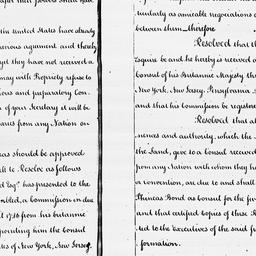 the United States have already
generous agreement and thereby
yet they have not received a
may with Propriety refuse to
ious and preparatory Con
of your Secretary it will be
sures from any Nation on
was should be approved
ll to Resolve as follows
d Esqr. has presented to the
mbled, a Commission in due
il 1786 from his britannic
ppointing him the Consul
tes of New York, New Jersey.
icularly as amicable negotiations a
between them therefore
Resolved that th
Esquire be and he hereby is received a
Consul of his Britannic Majesty thr
New York, New Jersey Pennsylvania
and that his Commission be registere
Resolved that al
nences and authority, which the
the Land, give to a Consul received
from any Nation with whom they ha
a convention, are due to and shall
Phineas Bond as Consul for the five
and that certified copies of these R
ted to the Executives of the said f
formation.